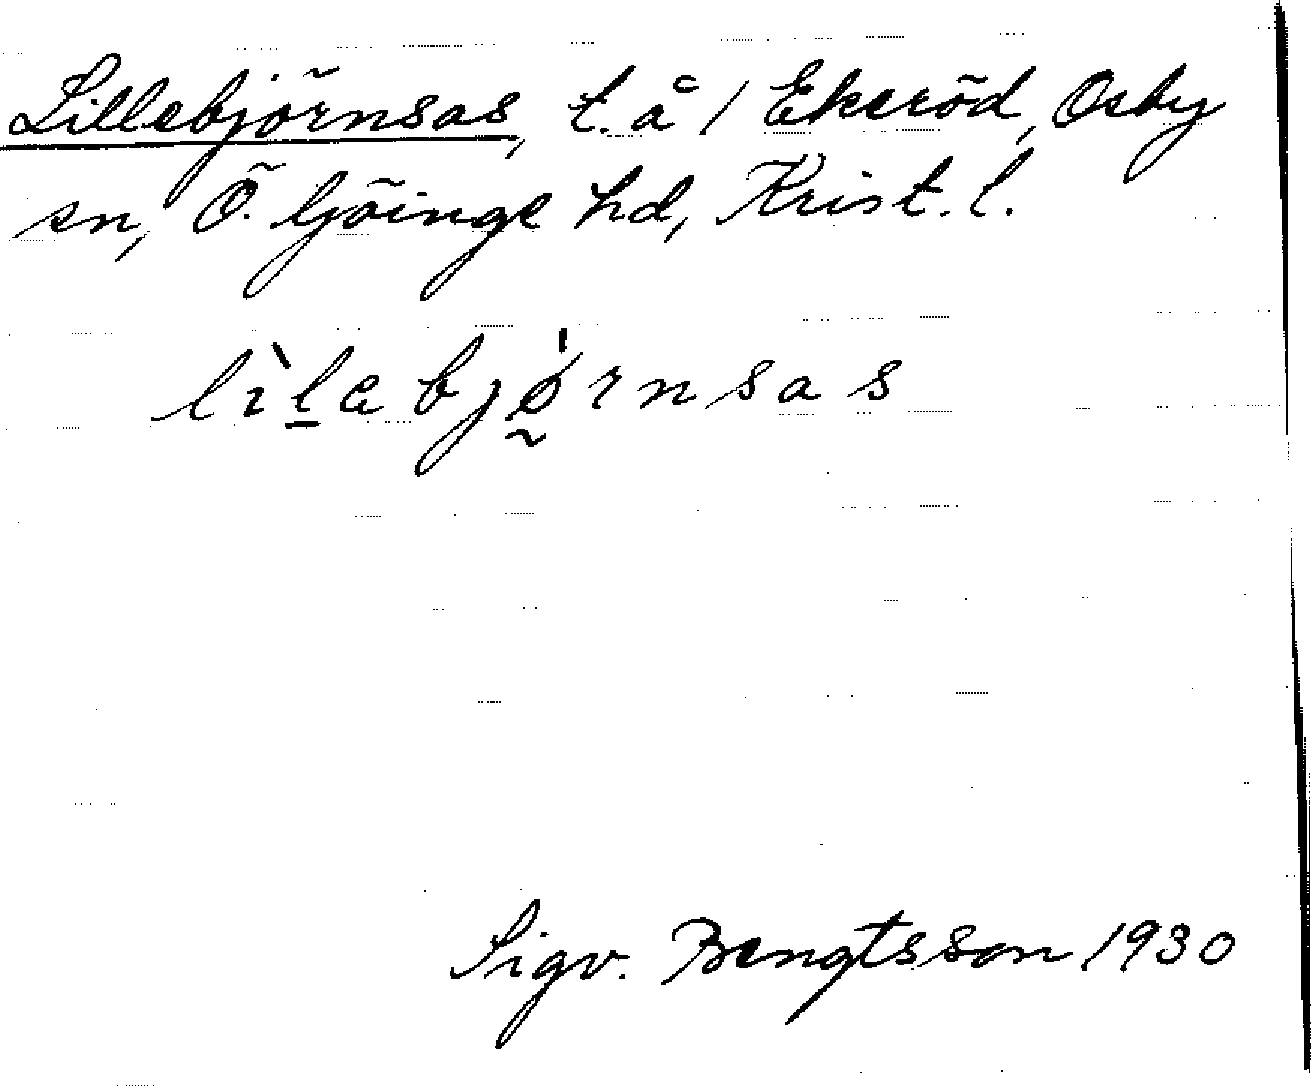 Lillebjörnsas, t. å / Ekeröd, Osby
sn, Ö. Göinge hd, Krist. l.
lìl̲ebjǿ̰rnsas
Sigv. Bengtsson 1930